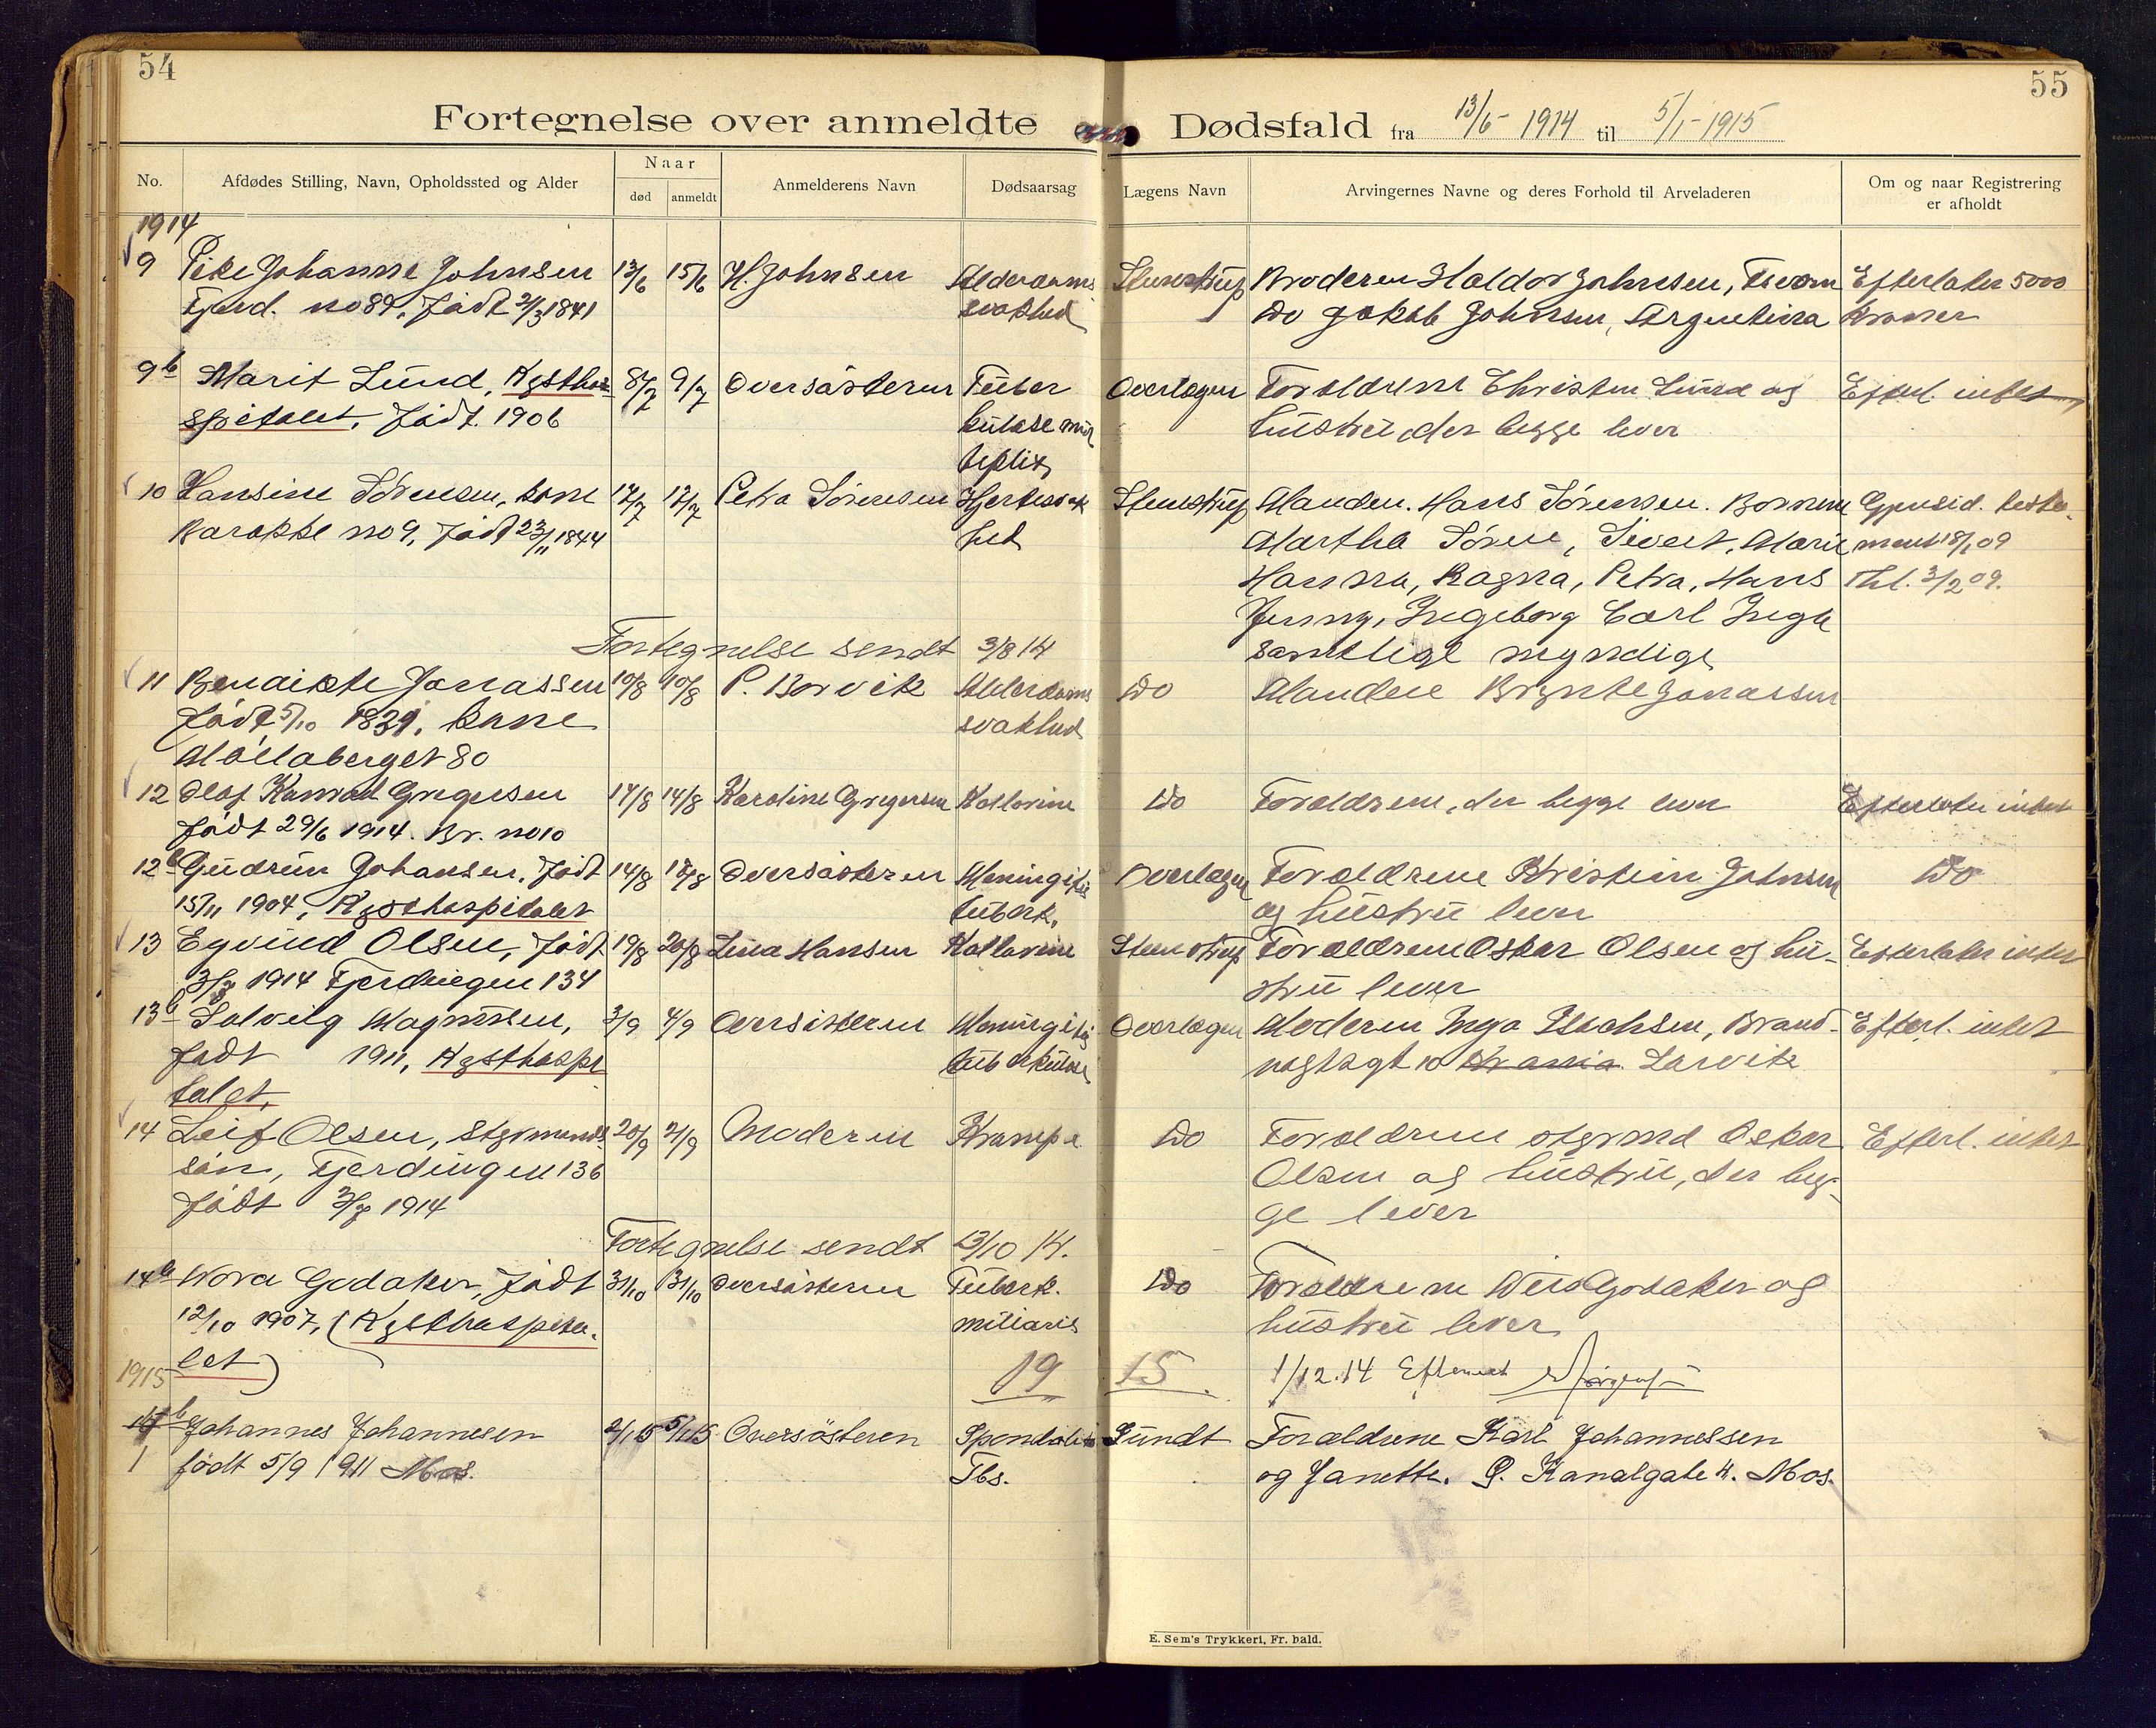 54
55
Fortegnelse over anmeldte Dødsfald fra 13/6 - 1914 til 5/1 - 1915
No.
Afdødes Stilling, Navn, Opholdssted og Alder
Naar
død
anmeldt
Anmelderens Navn
Dødsaarsag
Lægens Navn
Arvingernes Navne og deres Forhold til Arveladeren
Om og naar Registrering
er afholdt
1914
9 Pike Johanne Johnsen 13/6 15/6 H. Johnsen Alderdoms Stenstrup Broderen Haldor Johnsen, Efterlater 5000
Fjerd. no 89, født 2/3 1841 svakhed Do Jakob Johnsen, Argentina Kroner
9b Marit Lund, Kystho- 8/7 9/7 Oversøsteren Tuber Overlægen Forældrene Christen Lund og Efterl. intet
spitalet, født 1906 kulose mul hustru, der begge lever
tiplix
10 Hansine Sørensen, kone 17/7 17/7 Petra Sørensen Hjertesvak Stenstrup Manden. Hans Sørensen. Børnene Gjensid. testa-
Barakke no 9, født 23/11 1844 hed Martha Sørine, Sivert, Marie ment 18/1 09
Hanna, Ragna, Petra, Hans Thl. 3/2 09.
Jenny, Ingeborg Carl Inga
Fortegnelse sendt 3/8 14 samtlige myndige
11 Benedikte Jonassen 10/8 10/8 P. Borvik Alderdoms Do Mandene Brynte Jonassen
født 5/10 1831, kone svakhed
Møllaberget 80
12 Olaf Konrad Gregersen 14/8 14/8 Karoline Gregersen Kollerine Do Forældrene, der begge lever Efterlater intet
født 29/6 1914. Br. no 10
12b Gudrun Johansen, født 14/8 18/8 Oversøsteren Meningitis Overlægen Forældrene Kristian Johnsen Do
15/11 1904, Kysthospitalet tuberk. og hustru lever
13 Eyvind Olsen, født 19/8 20/8 Lina Hansen Kollerine Stenstrup Forældrene Oskar Olsen og hu- Efterlater intet
3/7 1914 Fjerdingen 134 stru lever
13b Solveig Magnussen, 3/9 4/9 Oversøsteren Meningitis Overlægen Moderen Inga Isachsen, Brand- Efterl. intet
født 1911, Kysthospi tuberkulose vagtsgt 10 Larvik
talet,
14 Leif Olsen, styrmands 20/9 21/9 Moderen Krampe Do Forældrene styrmd Oskar Efterl. intet
søn, Fjerdingen 136 Olsen og hustru, der beg-
født 3/7 1914 ge lever
Fortegnelse sendt 13/10 14.
14b Nora Godaker, født 31/10 31/10 Oversøsteren Tuberk. Do Forældrene Godaker og
12/10 1907, (Kysthospita- miliaris hustru lever
let)
1915 19 15 1/12.14 Efterseet
1 Johannes Johannesen 2/1 15 5/1 15 Oversøsteren Spondolitis Sundt Forældrene Karl Johannessen
født 5/9 1911 Mos. Tbs. og Janette. S. Kanalgate 4. Mos.
E. Sem's Trykkeri, Fr. hald.